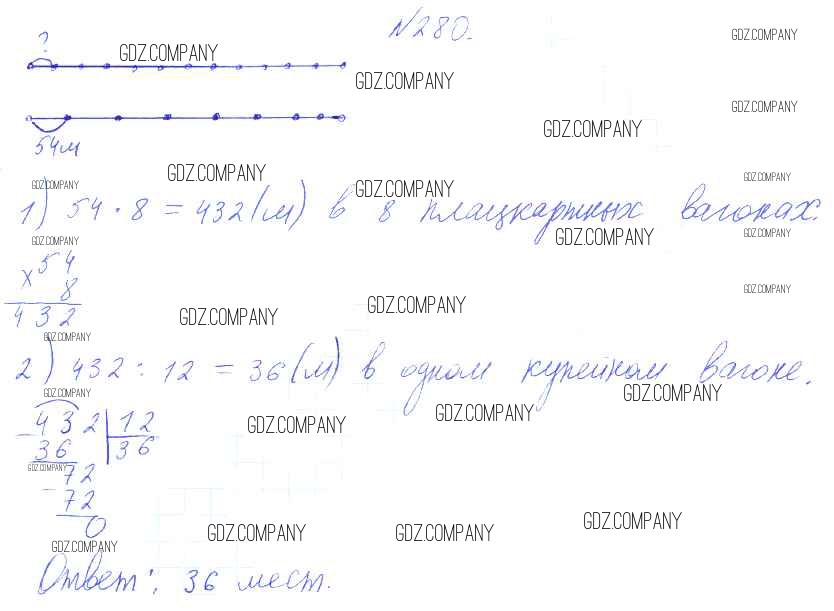 №280.
?
GDZ.COMPANY GDZ.COMPANY
GDZ.COMPANY
GDZ.COMPANY
GDZ.COMPANY
54м
GDZ.COMPANY GDZ.COMPANY
GDZ.COMPANY GDZ.COMPANY
1) 54 · 8 = 432 (м) в 8 плацкартных вагонах.
GDZ.COMPANY GDZ.COMPANY GDZ.COMPANY
× 54
8
GDZ.COMPANY
432
GDZ.COMPANY GDZ.COMPANY
GDZ.COMPANY
2) 432 : 12 = 36 (м) в одном купейном вагоне.
GDZ.COMPANY GDZ.COMPANY
- 432 | 12
GDZ.COMPANY GDZ.COMPANY
36 | 36
GDZ.COMPANY
- 72
72
0
GDZ.COMPANY GDZ.COMPANY GDZ.COMPANY
GDZ.COMPANY
Ответ: 36 мест.